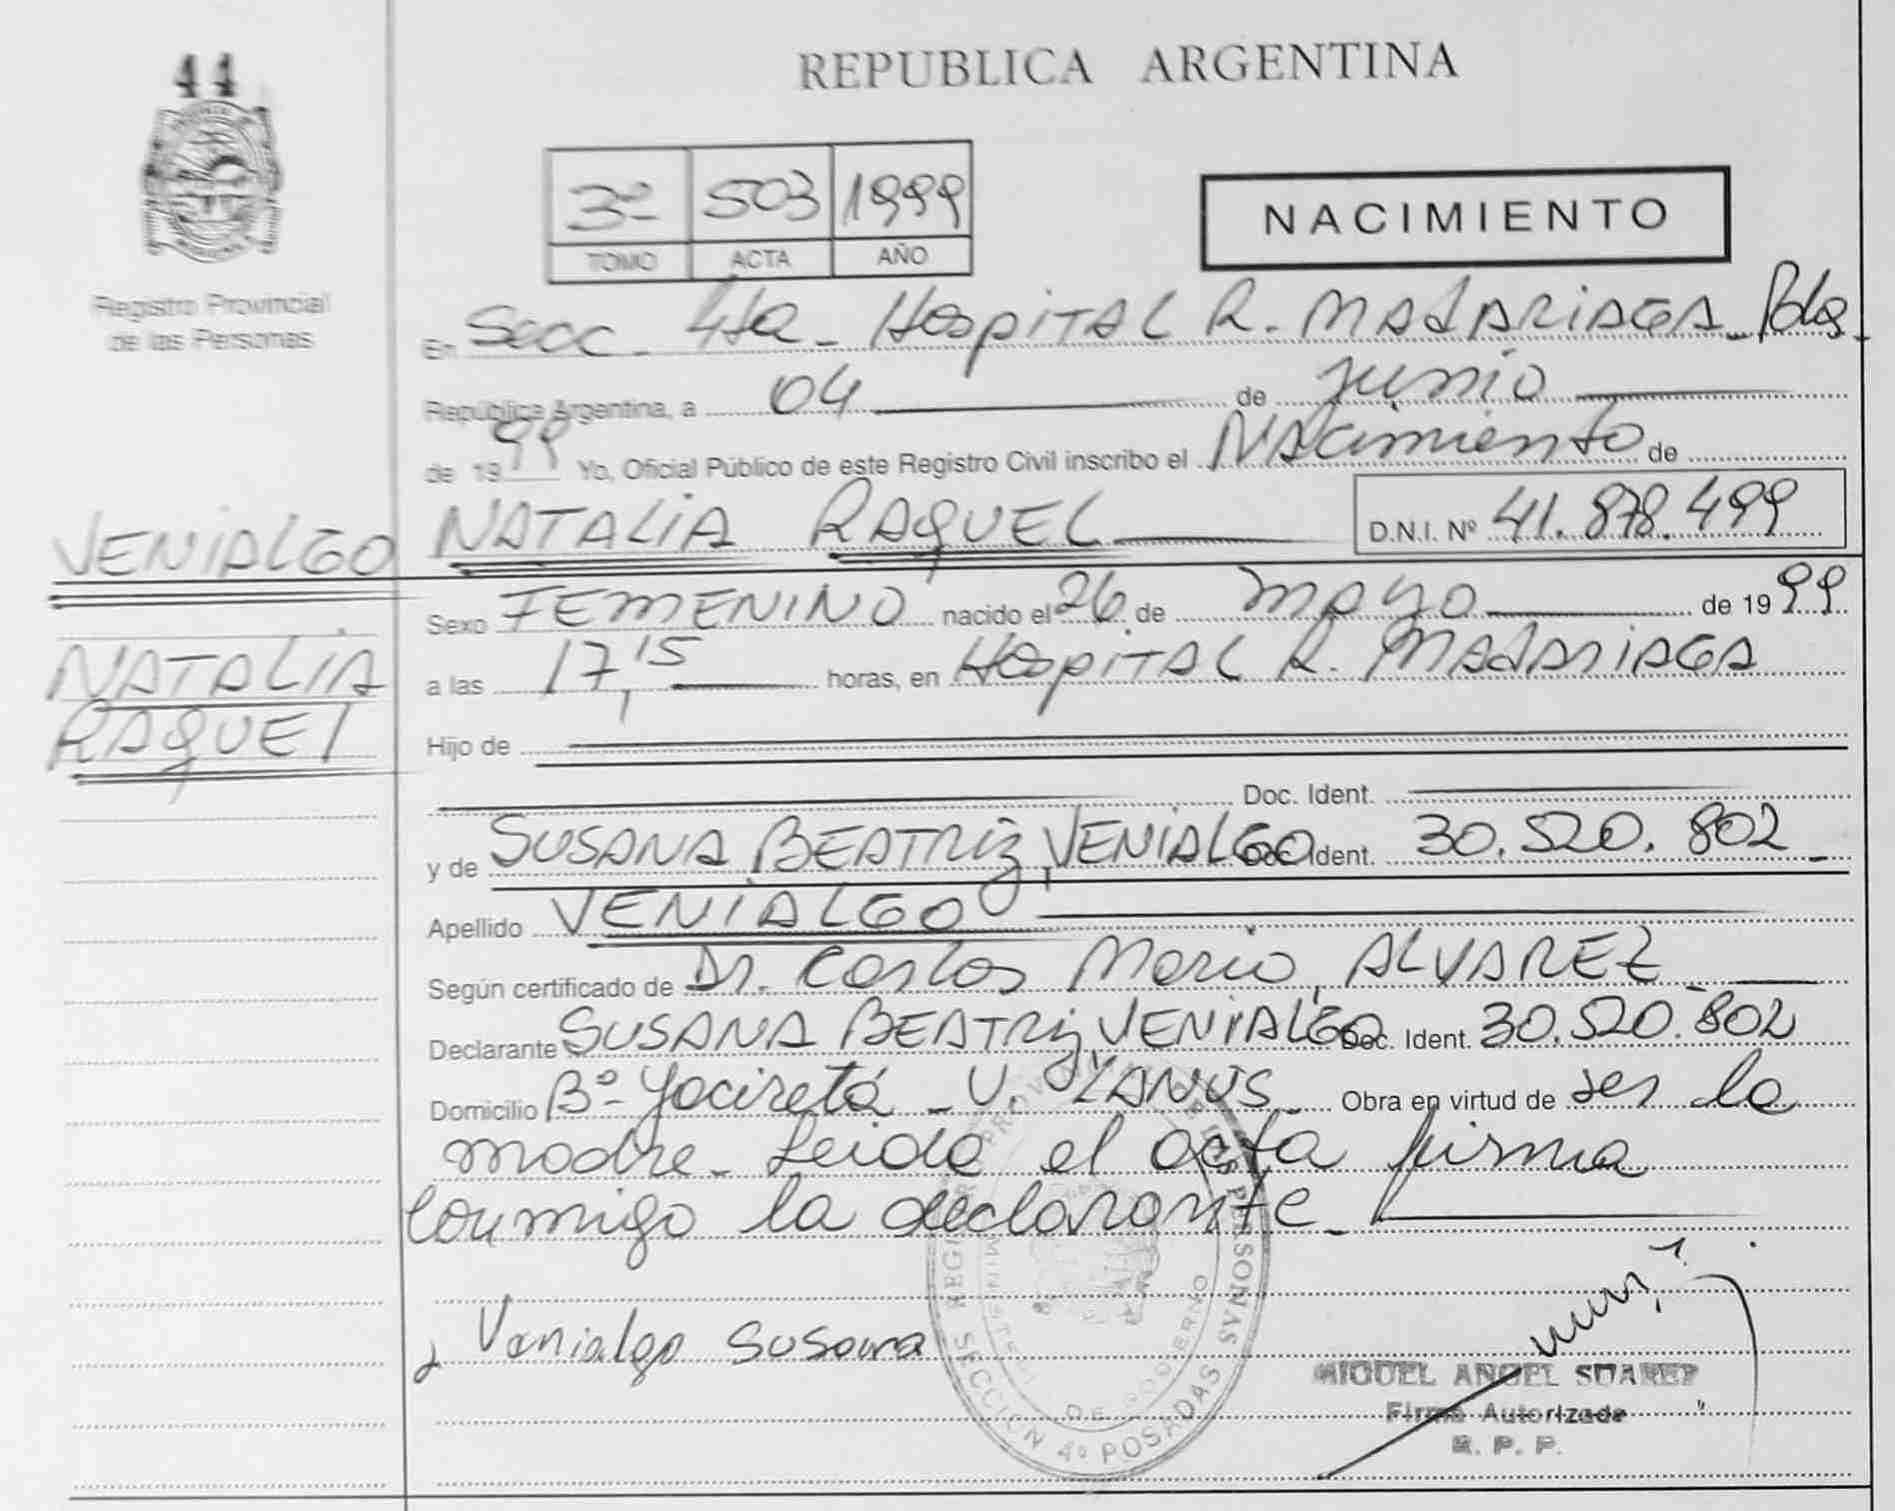 44
Registro Provincial
de las Personas
REPUBLICA ARGENTINA
3º 503 1999
TOMO ACTA AÑO
NACIMIENTO
En Secc. 4ta - Hospital R. MADARIAGA - Pdas -
República Argentina, a 04 de junio
de 1999 Yo, Oficial Público de este Registro Civil inscribo el Nacimiento de
VENIALGO NATALIA RAQUEL D.N.I. Nº 41.878.499
NATALIA
RAQUEL
Sexo FEMENINO nacido el 26 de mayo de 1999
a las 17,15 horas, en Hospital R. MADARIAGA
Hijo de
Doc. Ident.
y de SUSANA BEATRIZ VENIALGO Doc. Ident. 30.520.802
Apellido VENIALGO
Según certificado de Dr. Carlos Mario ALVAREZ
Declarante SUSANA BEATRIZ VENIALGO Doc. Ident. 30.520.802
Domicilio Bº Yaciretá - V. LANUS - Obra en virtud de ser la
madre - Leida el acta firma
conmigo la declarante -
Venialgo Susana
SECCION 4º POSADAS
DE GOBIERNO
MIGUEL ANGEL SUAREZ
Firma Autorizada
R. P. P.